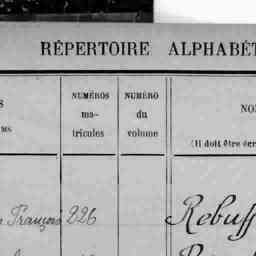 RÉPERTOIRE ALPHABÉT
S
MS
NUMÉROS
ma-
tricules
NUMÉRO
du
volume
NO
(Il doit être écr
François 226
Rebuff